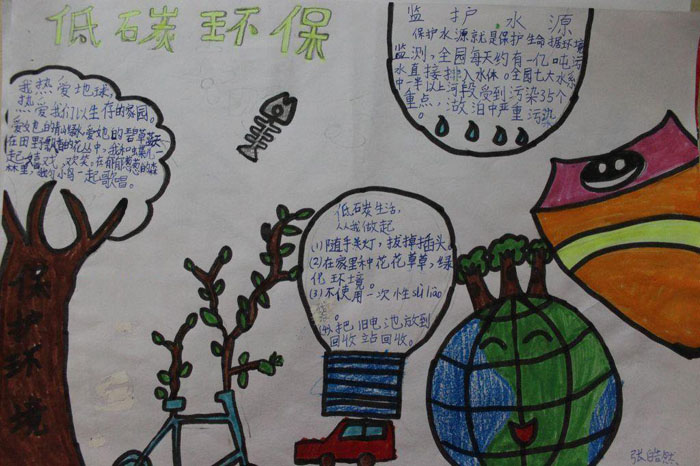 低碳环保
我热爱地球,
热爱我们以生存的家园。
在田野
起嬉戏,欢笑,在郁郁葱葱的森
林里,我们小鸟一起歌唱。
保护环境
监护水源
保护水源就是保护生命据环境
监测,全园每天约有一亿吨污
水直接排入水体。全园七大水系
中一半以上河段受到污染35个
重点,湖泊中严重污染
低碳生活,
从我做起
(1)随手关灯,拔掉插头。
(2)在家里种花花草草,绿
化环境。
(3)不使用一次性sùliào
。
(4)把旧电池放到
回收站回收。
张皓然